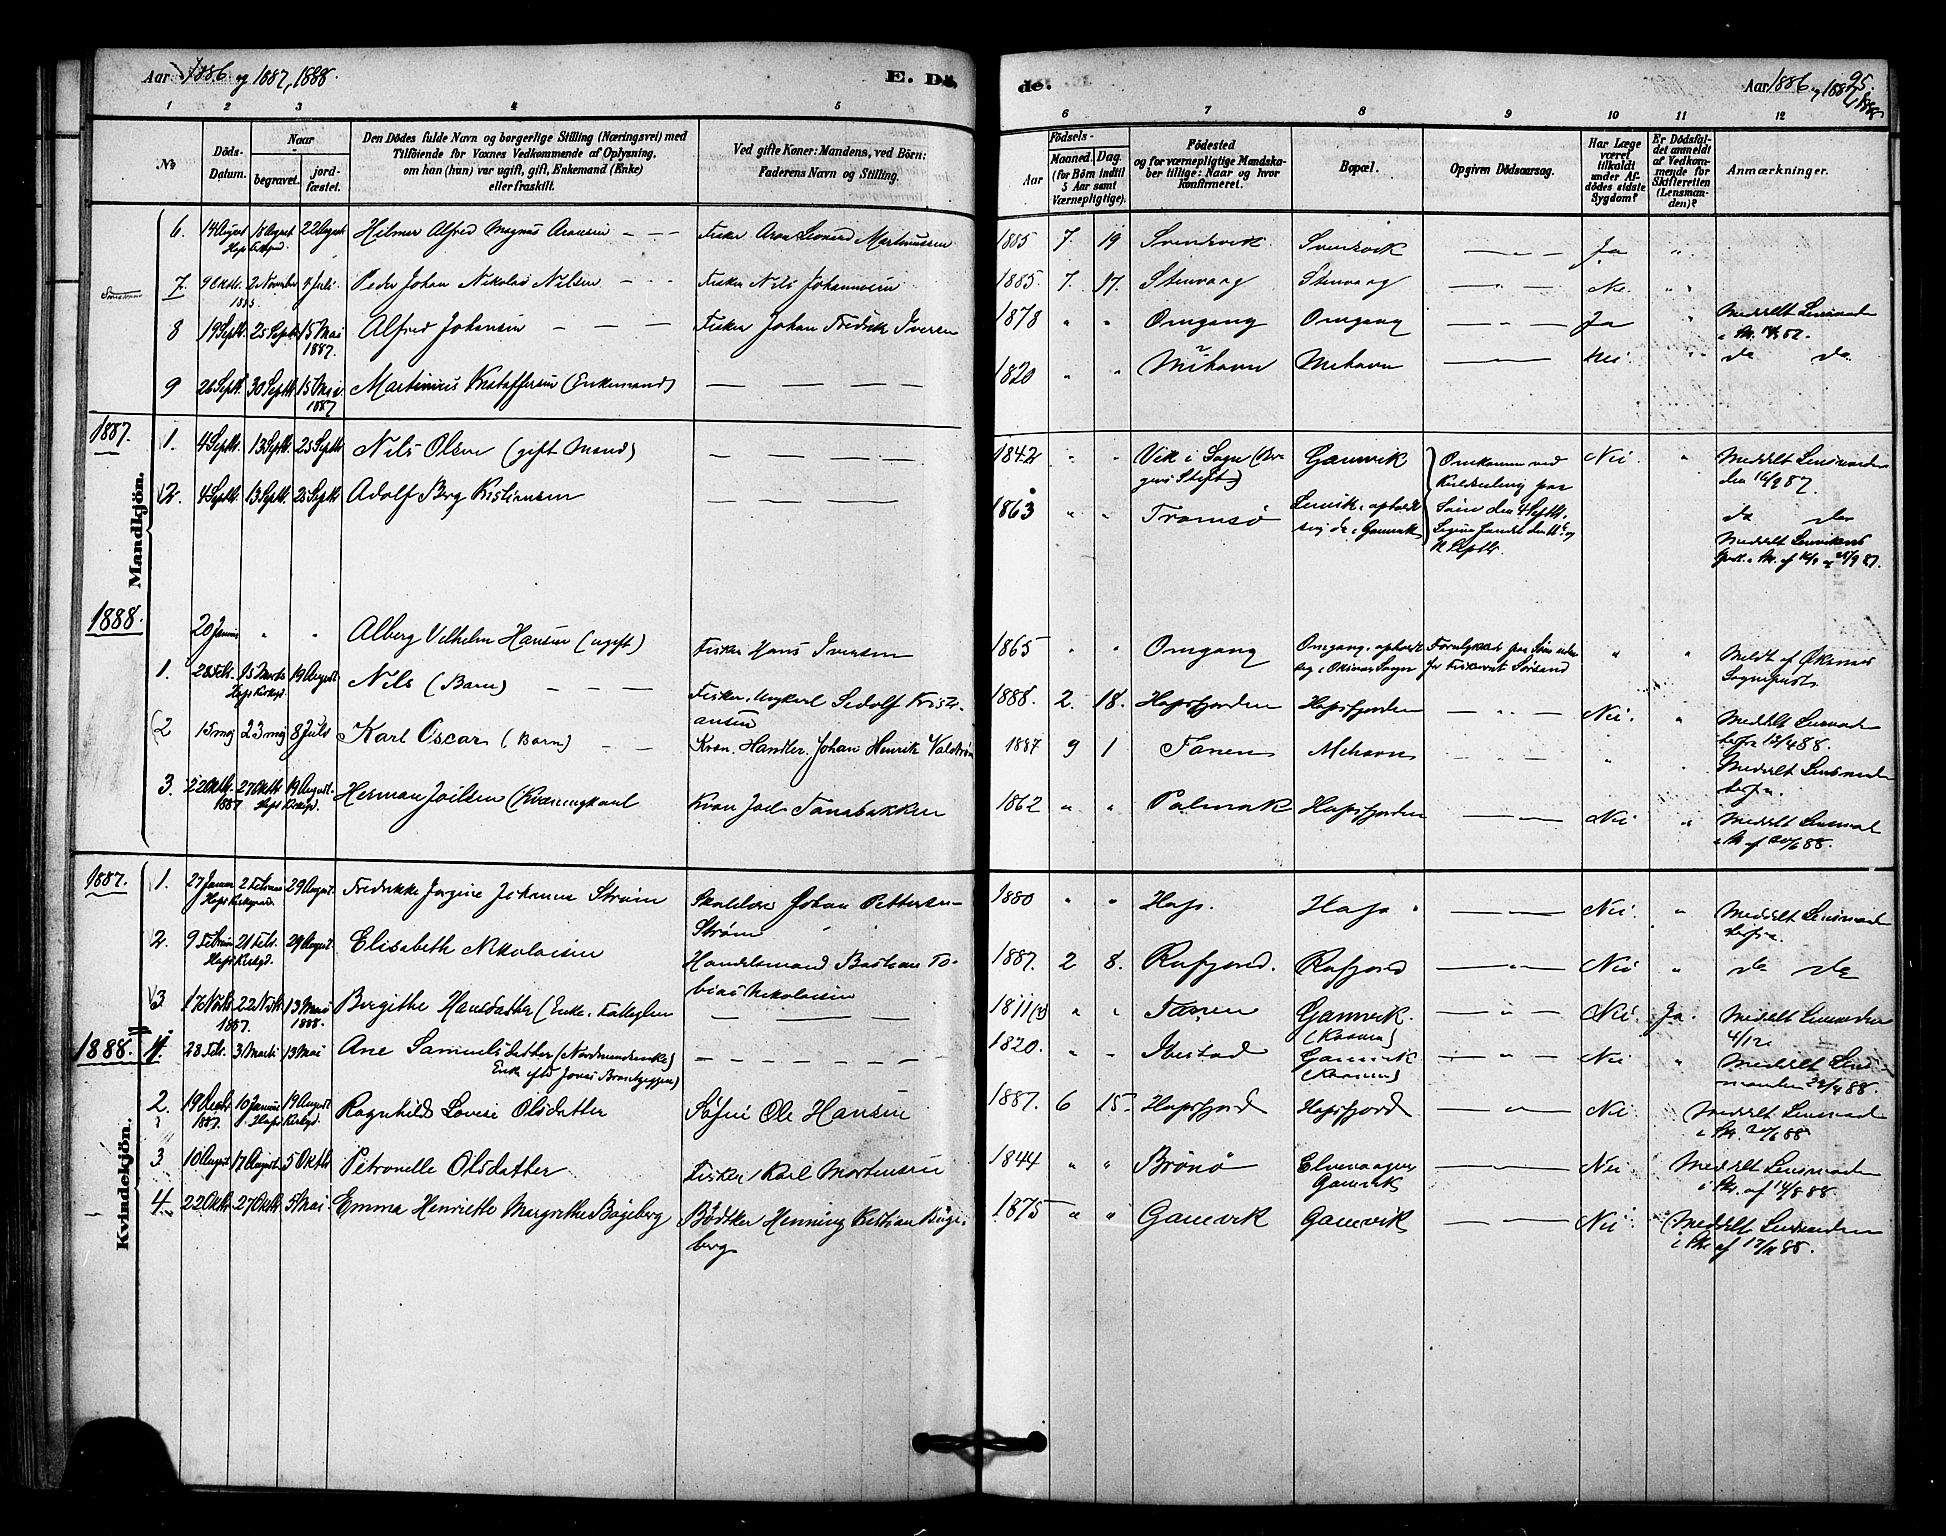 Aar 1886 og 1887, 1888.
E. Dö
de.
Aar 1886 og 1887 1888
95.
1 2 3 4 5 6 7 8 9 10 11 12
No
Döds-Datum.
Naar
begravet.
jord-fæstet.
Den Dödes fulde Navn og borgerlige Stilling (Næringsvei) med
Tilföiende for Voxnes Vedkommende af Oplysning,
om han (hun) var ugift, gift, Enkemand (Enke)
eller fraskilt.
Ved gifte Koner: Mandens, ved Börn:
Faderens Navn og Stilling.
Födsels-
Aar
Maaned. Dag.
(for Börn indtil
5 Aar samt
Værnepligtige).
Födested
og for værnepligtige Mandska-
ber tillige: Naar og hvor
konfirmeret.
Bopæl.
Opgiven Dödsaarsag.
Har Læge
været
tilkaldt
under Af-
dödes sidste
Sygdom?
Er Dödsfal-
det anmeldt
af Vedkom-
mende for
Skifteretten
(Lensman-
den)?
Anmærkninger.
6. 14 August 18 August 22 August Hilmer Alfred Magnus Aronsen — — — Fisker Aron Leonard Martinussen 1885 7. 19 Svensvik Svensvik — „ — Ja „
7. 9 Oktb. 1885 2 November 4 Juli Peder Johan Nikolai Nilsen — — — Fisker Nils Johannesen 1885. 7. 17. Stenvaag Stenvaag — „ — Ne. „
8 19 Septb. 25 Septb. 15 Mai 1887. Alfred Johansen — — — Fisker Johan Fredrik Iversen 1878 „ „ Omgang Omgang — „ — Ja „ Meddelt Lensmanden
9 26 Septb. 30 Septb. 15 Mai 1887 Martinus Kristoffersen (Enkemand) — — — — 1820 „ „ Mehavn Mehavn — „ — Nei „ do do
1887.
Mandkjön.
1. 4 Septb. 13 Septb. 25 Septb. Nils Olsen (gift Mand) — — — — 1842 „ „ Vik i Sogn (Ber-
gens Stift) Gamvik Omkommen ved
Kuldseiling paa
Söen den 4 Septb.
Nei „ Meddelt Lensmanden
den 16/9 87.
2. 4 Septb. 13 Septb. 25 Septb. Adolf Berg Kristiansen — — — — 1863 „ „ Tromsö Lenvik, opholdt
sig da i Gamvik
do do
Meddelt Lenvikens
1888.
20 Januar „ „ Alberg Vilhelm Hansen (ugift) Fisker Hans Iversen 1865 „ „ Omgang Omgang, opholdt
Forulykket paa Söen
„ „ Meldt af Öksnes
Sognepræst
1. 28 Feb. 15 Marts 19 August Nils (Barn) — — — Fisker, Ungkarl Sedolf Kristi-
ansen 1888. 2. 18. Hopsfjorden Hopsfjorden — „ — Nei. „ Meddelt Lensmanden
herfra 18/4 88.
2 15 Maj 23 Maj 8 Juli Karl Oscar (Barn) — — Kvæn. Handler. Johan Henrik Valström 1887 9 1 Tanen Mehavn — „ — „ „ Meddelt Lensmanden
herfra.
3. 22 Oktb. 1887 27 Oktb. 19 August. Herman Joilsen (Kvæningkarl Kvæn Joel Tanabakken 1862 „ „ Polmak Hopsfjorden — „ — Nei „ Meddelt Lensmand
i Skr. af 20/6 88.
1887.
1. 27 Januar 2 Februar 29 August. Fredrikke Jørgine Johanne Strøm Skolelærer Johan Pettersen
Strøm 1880 „ „ Hops. Hops — „ — Nei. „ Meddelt Lensmanden
herfra.
2. 9 Februar 21 Feb. 29 August. Elisabeth Nikolaisen Handelsmand Bastian To-
bias Nikolaisen 1887. 2 8. Rafjord. Rafjord — „ — Nei „ do do
3 17 Novb. 1887. 22 Novb. 13 Mai 1888. Birgithe Hansdatter (Enke. Fattiglem — — — 1811(?) „ „ Tanen Gamvik.
(Koven) — „ — Nei. Ja. Meddelt Lensmanden
4/12
1888.
1. 28 Feb. 3 Marts 13 Mai Ane Samuelsdatter (Nordmandsenke)
Enke efter Jonas — — — — 1820. „ „ Ibestad Gamvik — „ — Nei „ Meddelt Lens-
manden 22/4 88.
Kvindekjön.
2. 19 1887. 10 Januar 19 August Ragnhild Lovise Olsdatter Søfin Ole Hansen 1887. 6 15. Hopsfjord Hopsfjord — „ — Nei. Meddelt Lensmanden
i Skr. 20/6 88
3 10 August 17 August 5 Oktb Petronelle Olsdatter Fisker Karl Mortensen 1844 „ „ Brønø
Gamvik — „ — Nei Meddelt Lensmanden
i Skr. af 14/8 88.
4. 22 Oktb 27 Oktb 5 Mai Emma Henriette Margrethe Bøgeberg Bødtker Henning Kristian Bøge-
berg 1875 „ „ Gamvik Gamvik — — Nei Meddelt Lensmanden
i Skr af 17/11 88.